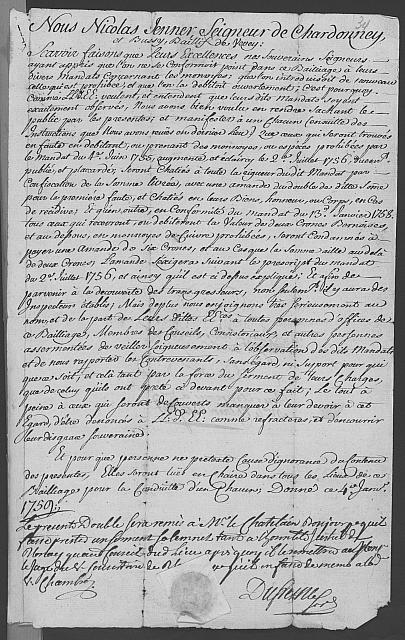 Nous Nicolas Jenner, Seigneur de Chardonney,
et Bussy Baillif de Vevey;
Scavoir faisons que Leurs Excellences nos Souverains Seigneurs
ayant appris que l'on ne se Conformoit point dans ce Bailliage à leurs
divers Mandats Concernant les monnoyes; que l'on introduisoit de nouveau
celles qui sont prohibées; et que l'on les debitoit ouvertement; C'est pourquoy
Comme L.L. EE. veulent, et entendent que leurs dits Mandats soyent
exactement observés, Nous avons bien voulu en rendre Sachant le
public par les presentes; et manifester à un Chacun (ensuitte des
Instructions que Nous avons reçues en dernier lieu) Que ceux qui Seront trouvés
en faute en debitant, ou prenant des monnoyes, ou espèces prohibées par
le Mandat du 4e. Juin 1755, augmenté et éclaircy le 2e. Juillet 1756
publié, et placardé; Seront Chatiés à toute la rigueur du dit Mandat par
Confiscation de la Somme livrée, avec une amande du double de ditte Somme
pour la première faute, et Chatiés en leurs Biens, honneur, ou Corps, en Cas
de récidive; Et qu'en outre, en Conformité du mandat du 13e. Janvier 1758,
tous ceux qui recevront, ou debiteront la Valeur de deux Crones Bernoises,
et au dessous, en monnoyes de Cuivre prohibées, Seront Condamnés à
payer une Amande de Six Crones, et au Cas que la Somme aille au delà
de deux Crones; L'amande S'exigera Suivant le prescript du mandat
du 2e. Juillet 1756, et ainsy qu'il est cy dessus expliqué; Et afin de
parvenir à la decouverte des transgresseurs, il y aura des
Inspecteurs établis; Mais de plus nous enjoignons très serieusement au
nom et de la part de Leurs dittes EEces. à toutes personnes d'offices de
ce Bailliage, Membres des Conseils, Consistoriaux, et autres personnes
assermentées de veiller soigneusement à l'observation des dits Mandats
et de nous rapporter les Contrevenants, Sans égard, ni Support pour qui
que ce Soit, et cela tant par la force du Serment de leurs Charges,
que de celuy qu'ils ont prêté cy devant pour ce fait; Le tout à
peine à ceux qui seront découverts manquer à leur devoir à cet
Egard, d'etre denoncés à LL. d. EE. comme refractères, et d'encourir
leur disgrace souveraine.
Et pour que personne ne prétexte Cause d'ignorance du Contenu
des presentes, Elles seront lües en Chaire dans tous les Lieux de ce
Bailliage pour la Conduitte d'un Chacun; Donné ce 4e. Janvr.
1759.
Le présent Double sera remis à Mr. le Chatelain Bonjour pour qu'il
fasse prêter un Serment Solemnel tant à
qu'au Conseil du d. Lieu après quoy il le remettra au